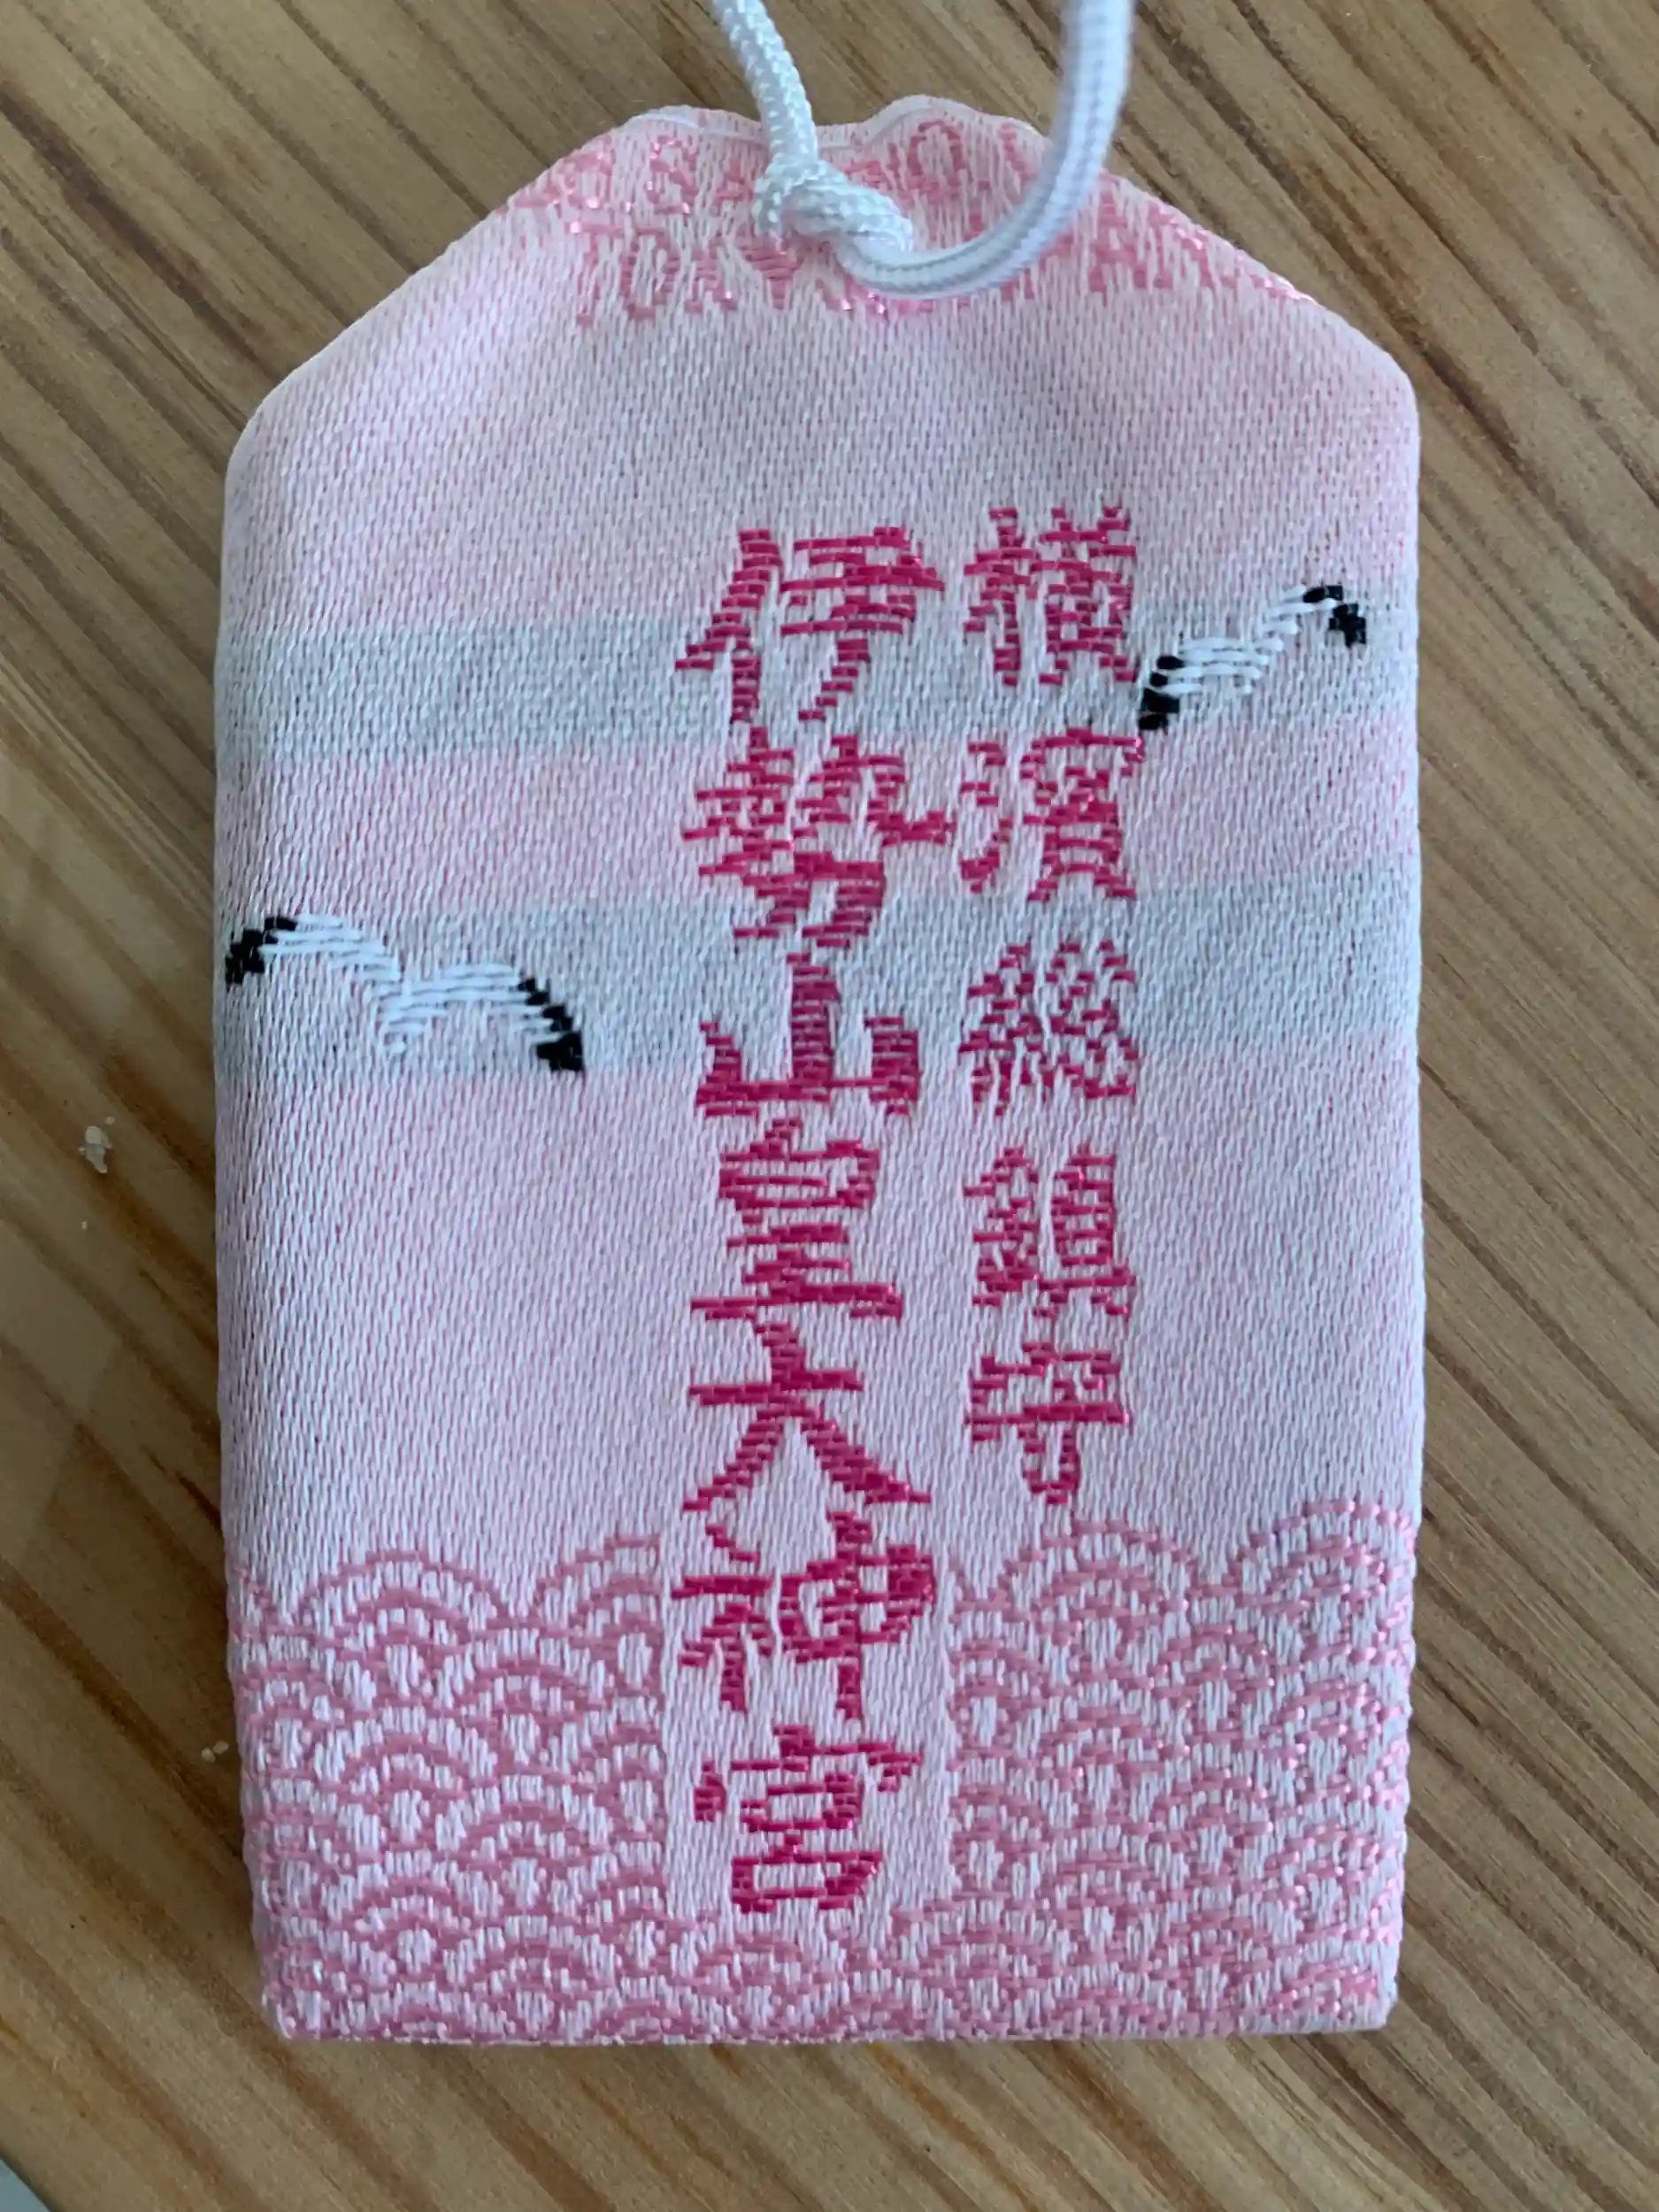 横濱總鎭守
伊勢山皇大神宮